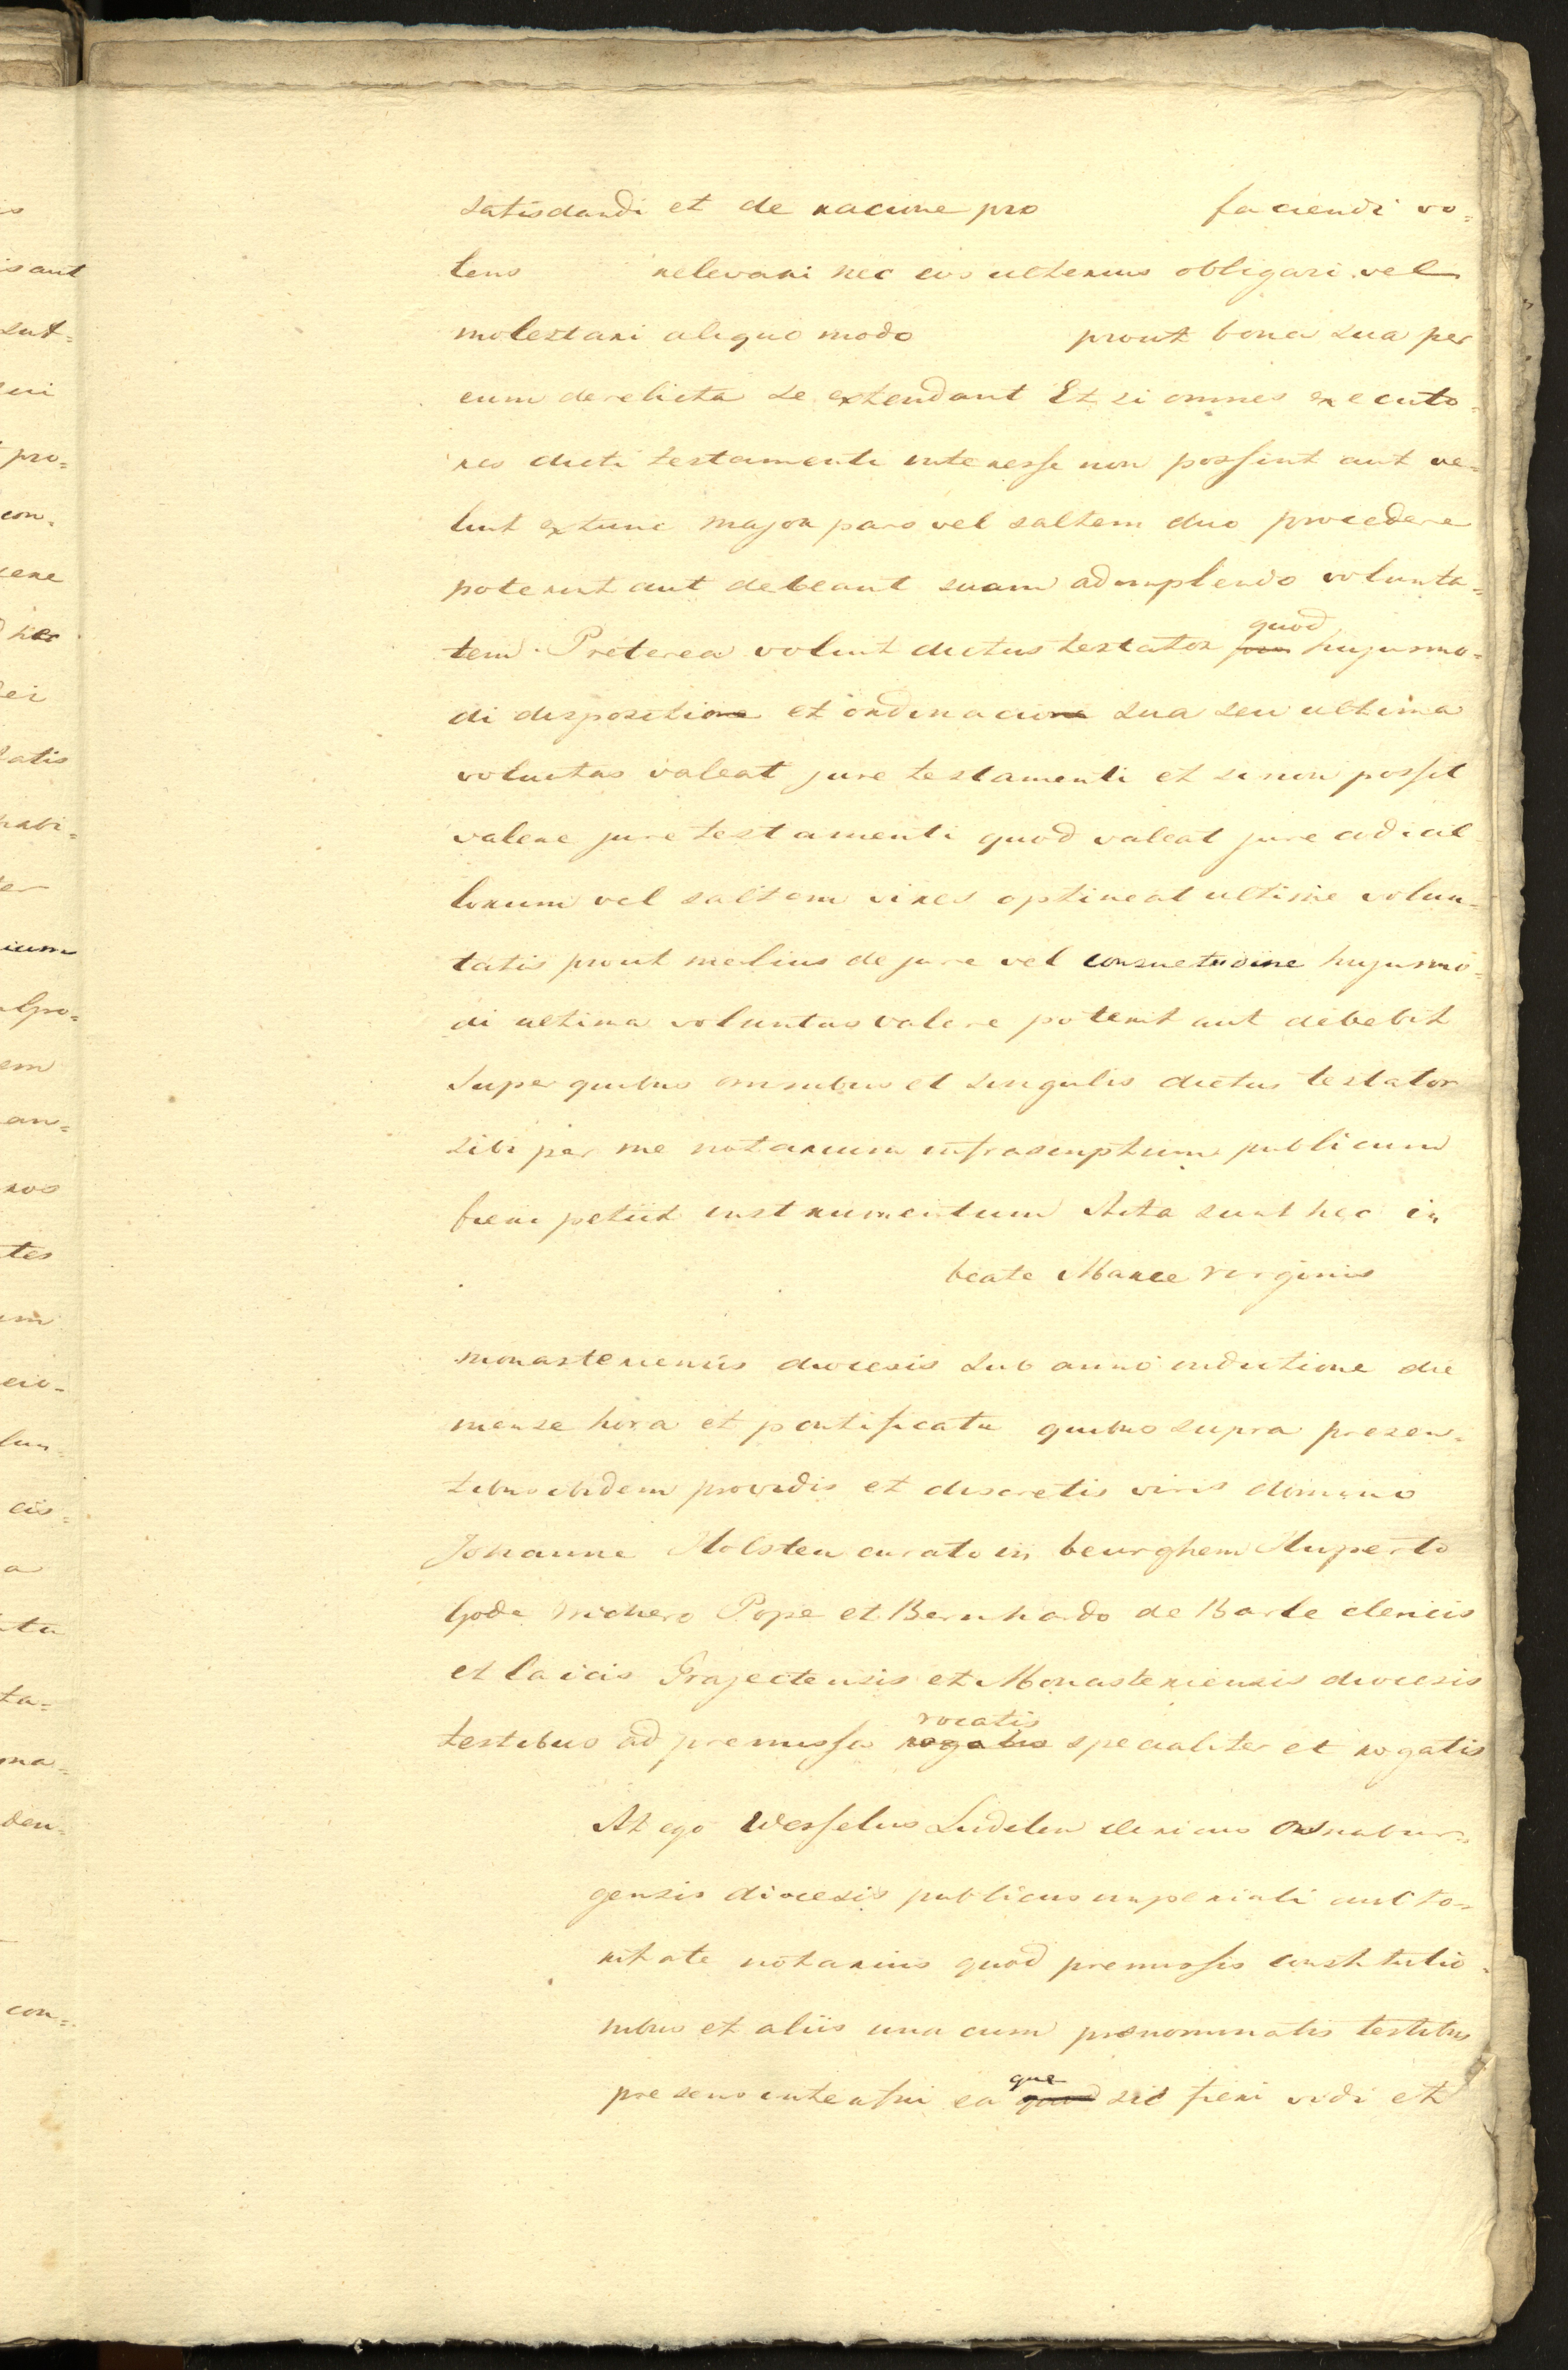 satisdandi et de racione pro faciendi vo=
lens relevari nec eos ulterius obligari vel
molestari aliquo modo prout bona sua per
eum derelicta se extendant Et si omnes executo=
res dicti testamenti interesse non possint aut ve=
lint extunc major pars vel saltem duo procedere
poterint aut debeant suam adimplendo volunta=
tem. Preterea voluit dictus testator quod hujusmo=
di dispositio et ordinacio sua seu ultima
voluntas valeat jure testamenti et si non possit
valere jure testamenti quod valeat jure codicil=
lorum vel saltem vires optineat ultime volun=
tatis prout melius de jure vel consuetudine hujusmo=
di ultima voluntas valere poterit aut debebit
Super quibus omnibus et singulis dictus testator
sibi per me notarium infrascriptum publicum
fieri petiit instrumentum Acta sunt hec in
beate Marie virginis
monasteriensis diocesis sub anno indictione die
mense hora et pontificatu quibus supra presen=
tibus ibidem providis et discretis viris domino
Johanne Holsten curato in beurghem Ruperto
Gode Wichero Pope et Bernhardo de Barle clericis
et laicis Trajectensis et Monasteriensis diocesis
testibus ad premissa vocatis specialiter et rogatis
At ego Wesselus Ludelen clericus Osnabur=
gensis diocesis publicus imperiali aucto=
ritate notarius quod premissis constitutio=
nibus et aliis una cum prenominatis testibus
presens interfui ea que sic fieri vidi et
is
is aut
sut=
pro=
con=
cere
hec
dei
tatis
habi=
ter
ium
em
an=
ros
tes
um
cio=
lun=
cis=
a
ta=
ma=
den=
con=